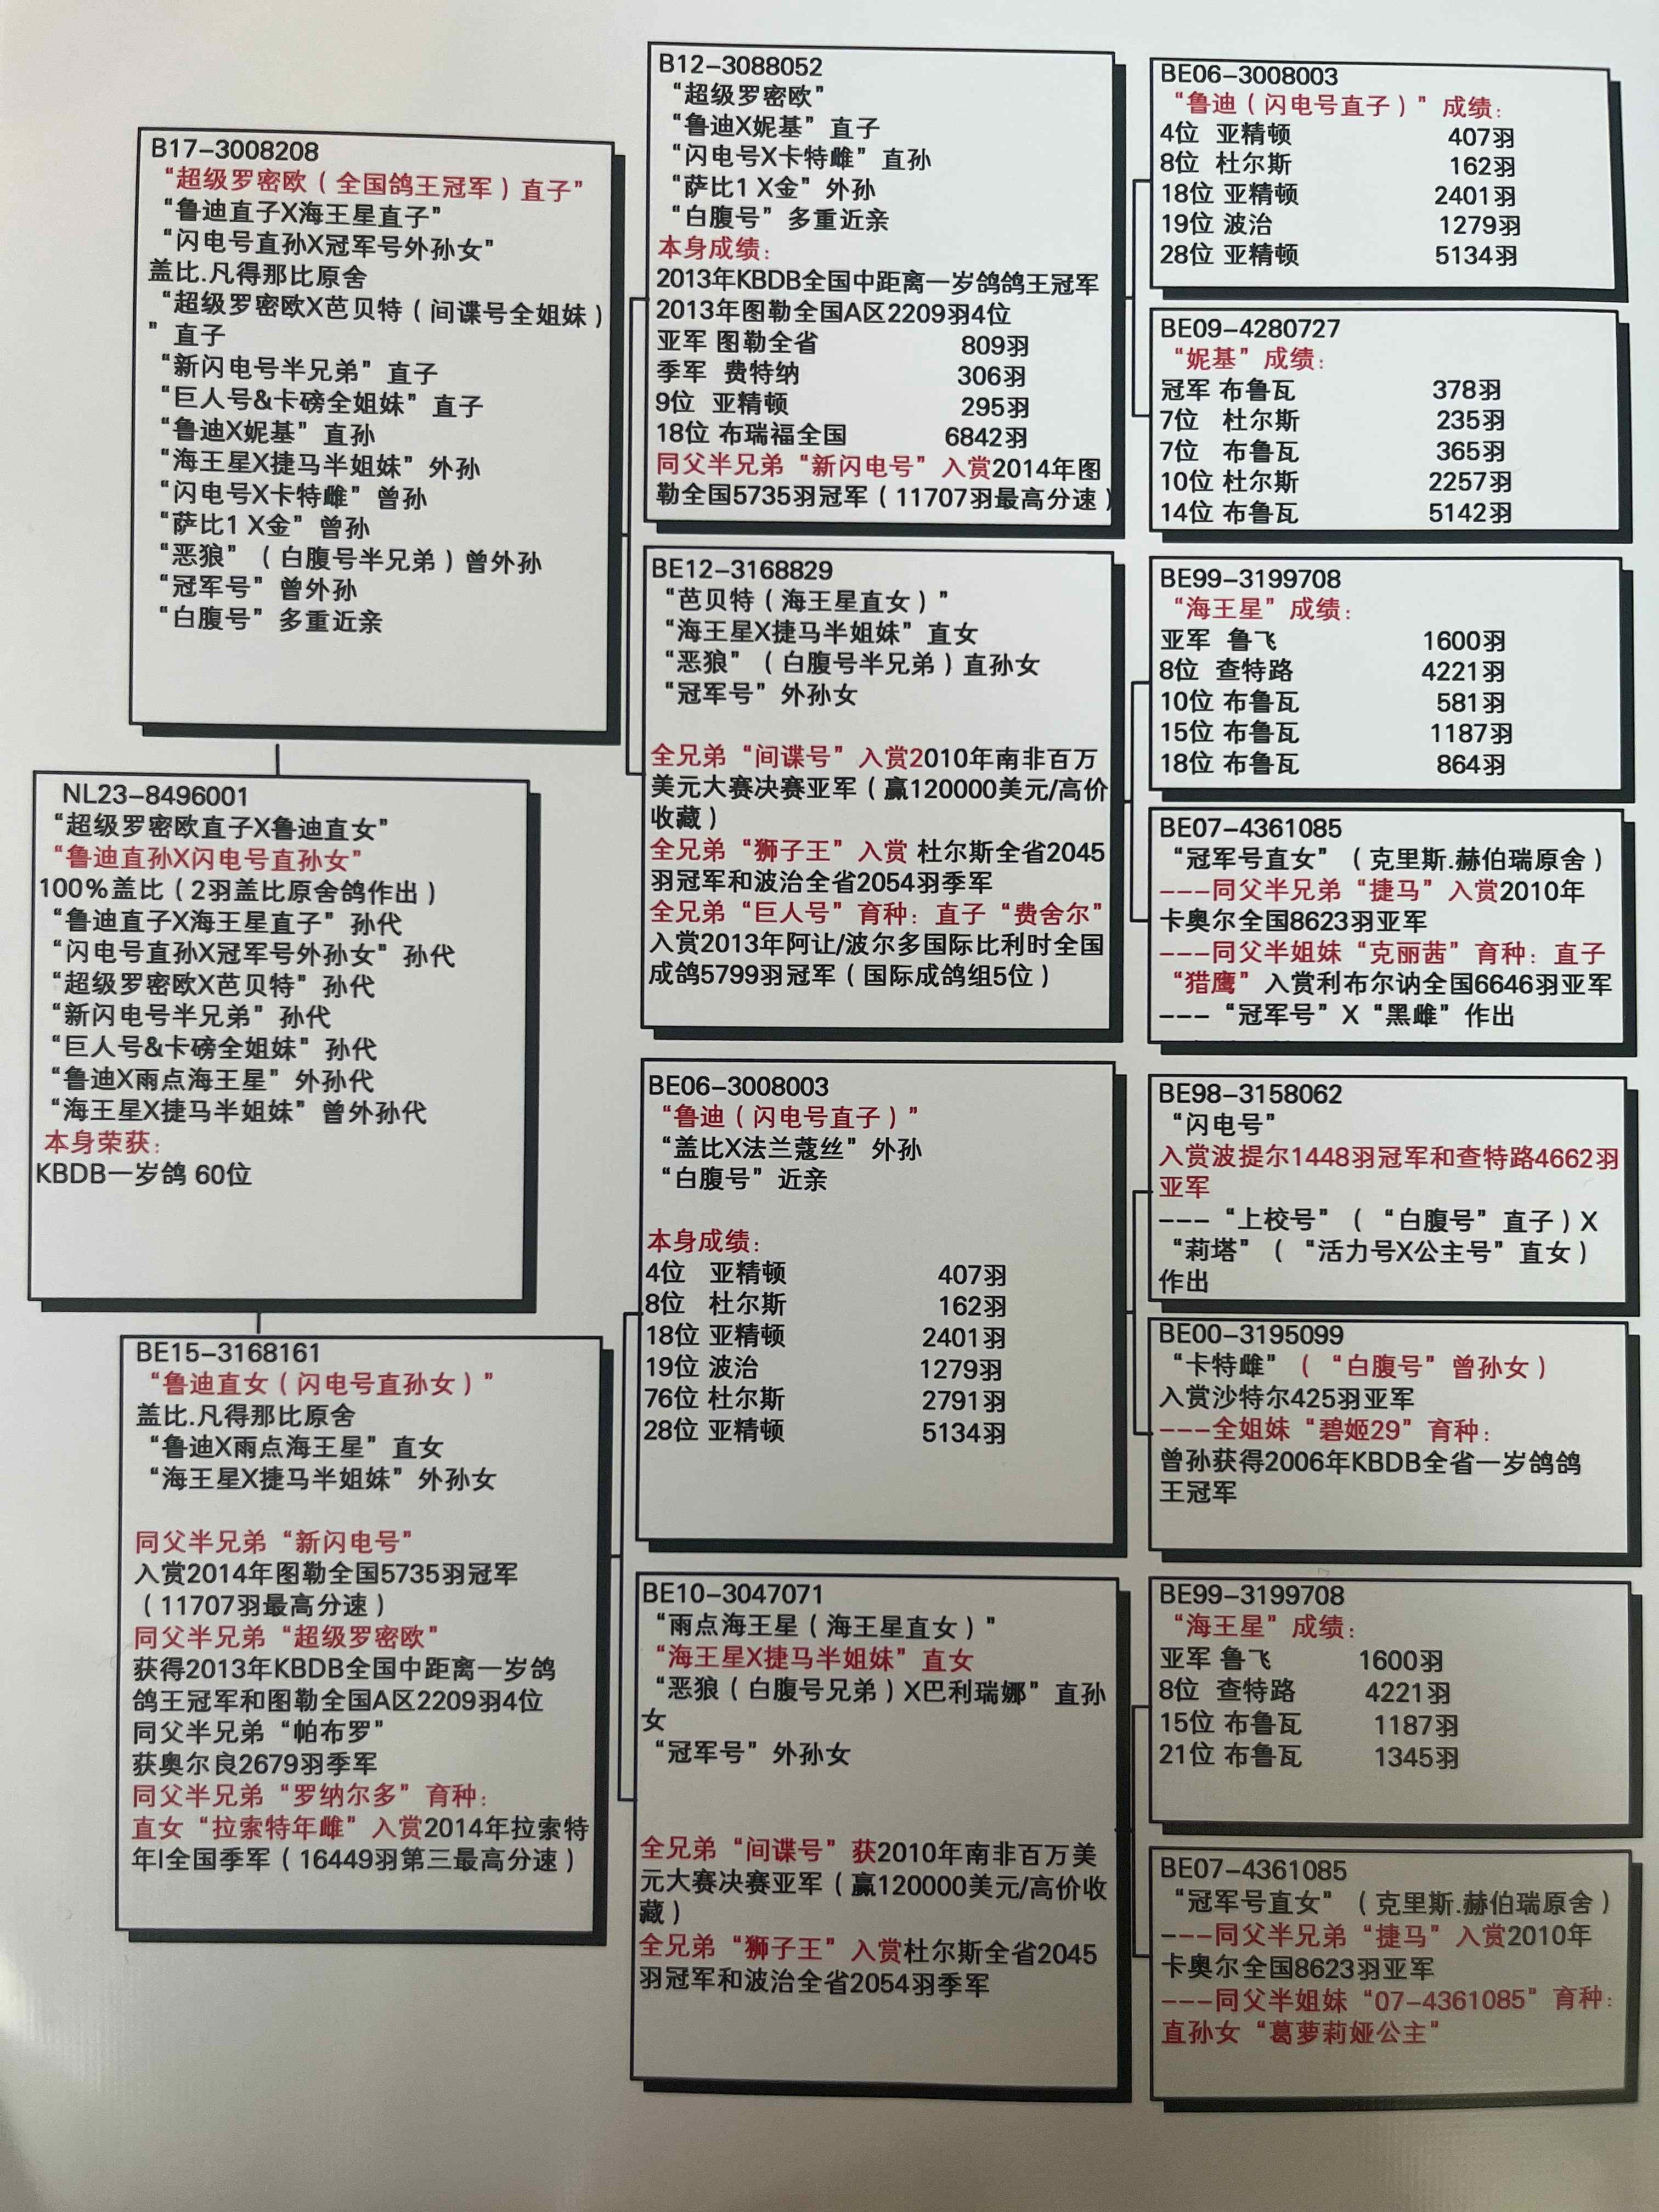 B17-3008208
“超级罗密欧（全国鸽王冠军）直子”
“鲁迪直子X海王星直子”
“闪电号直孙X冠军号外孙女”
盖比.凡得那比原舍
“超级罗密欧X芭贝特（间谍号全姐妹）
”直子
“新闪电号半兄弟”直子
“巨人号&卡磅全姐妹”直子
“鲁迪X妮基”直孙
“海王星X捷马半姐妹”外孙
“闪电号X卡特雌”曾孙
“萨比1 X金”曾孙
“恶狼”（白腹号半兄弟）曾外孙
“冠军号”曾外孙
“白腹号”多重近亲
NL23-8496001
“超级罗密欧直子X鲁迪直女”
“鲁迪直孙X闪电号直孙女”
100%盖比（2羽盖比原舍鸽作出）
“鲁迪直子X海王星直子”孙代
“闪电号直孙X冠军号外孙女”孙代
“超级罗密欧X芭贝特”孙代
“新闪电号半兄弟”孙代
“巨人号&卡磅全姐妹”孙代
“鲁迪X雨点海王星”外孙代
“海王星X捷马半姐妹”曾外孙代
本身荣获：
KBDB一岁鸽 60位
BE15-3168161
“鲁迪直女（闪电号直孙女）”
盖比.凡得那比原舍
“鲁迪X雨点海王星”直女
“海王星X捷马半姐妹”外孙女
同父半兄弟“新闪电号”
入赏2014年图勒全国5735羽冠军
（11707羽最高分速）
同父半兄弟“超级罗密欧”
获得2013年KBDB全国中距离一岁鸽
鸽王冠军和图勒全国A区2209羽4位
同父半兄弟“帕布罗”
获奥尔良2679羽季军
同父半兄弟“罗纳尔多”育种：
直女“拉索特年雌”入赏2014年拉索特
年I全国季军（16449羽第三最高分速）
B12-3088052
“超级罗密欧”
“鲁迪X妮基”直子
“闪电号X卡特雌”直孙
“萨比1 X金”外孙
“白腹号”多重近亲
本身成绩：
2013年KBDB全国中距离一岁鸽鸽王冠军
2013年图勒全国A区2209羽4位
亚军 图勒全省 809羽
季军 费特纳 306羽
9位 亚精顿 295羽
18位 布瑞福全国 6842羽
同父半兄弟“新闪电号”入赏2014年图
勒全国5735羽冠军（11707羽最高分速）
BE12-3168829
“芭贝特（海王星直女）”
“海王星X捷马半姐妹”直女
“恶狼”（白腹号半兄弟）直孙女
“冠军号”外孙女
全兄弟“间谍号”入赏2010年南非百万
美元大赛决赛亚军（赢120000美元/高价
收藏）
全兄弟“狮子王”入赏 杜尔斯全省2045
羽冠军和波治全省2054羽季军
全兄弟“巨人号”育种：直子“费舍尔”
入赏2013年阿让/波尔多国际比利时全国
成鸽5799羽冠军（国际成鸽组5位）
BE06-3008003
“鲁迪（闪电号直子）”
“盖比X法兰蔻丝”外孙
“白腹号”近亲
本身成绩：
4位 亚精顿 407羽
8位 杜尔斯 162羽
18位 亚精顿 2401羽
19位 波治 1279羽
76位 杜尔斯 2791羽
28位 亚精顿 5134羽
BE10-3047071
“雨点海王星（海王星直女）”
“海王星X捷马半姐妹”直女
“恶狼（白腹号兄弟）X巴利瑞娜”直孙
女
“冠军号”外孙女
全兄弟“间谍号”获2010年南非百万美
元大赛决赛亚军（赢120000美元/高价收
藏）
全兄弟“狮子王”入赏杜尔斯全省2045
羽冠军和波治全省2054羽季军
BE06-3008003
“鲁迪（闪电号直子）”成绩：
4位 亚精顿 407羽
8位 杜尔斯 162羽
18位 亚精顿 2401羽
19位 波治 1279羽
28位 亚精顿 5134羽
BE09-4280727
“妮基”成绩：
冠军 布鲁瓦 378羽
7位 杜尔斯 235羽
7位 布鲁瓦 365羽
10位 杜尔斯 2257羽
14位 布鲁瓦 5142羽
BE99-3199708
“海王星”成绩：
亚军 鲁飞 1600羽
8位 查特路 4221羽
10位 布鲁瓦 581羽
15位 布鲁瓦 1187羽
18位 布鲁瓦 864羽
BE07-4361085
“冠军号直女”（克里斯.赫伯瑞原舍）
---同父半兄弟“捷马”入赏2010年
卡奥尔全国8623羽亚军
---同父半姐妹“克丽茜”育种：直子
“猎鹰”入赏利布尔讷全国6646羽亚军
---“冠军号”X“黑雌”作出
BE98-3158062
“闪电号”
入赏波提尔1448羽冠军和查特路4662羽
亚军
---“上校号”（“白腹号”直子）X
“莉塔”（“活力号X公主号”直女）
作出
BE00-3195099
“卡特雌”（“白腹号”曾孙女）
入赏沙特尔425羽亚军
---全姐妹“碧姬29”育种：
曾孙获得2006年KBDB全省一岁鸽鸽
王冠军
BE99-3199708
“海王星”成绩：
亚军 鲁飞 1600羽
8位 查特路 4221羽
15位 布鲁瓦 1187羽
21位 布鲁瓦 1345羽
BE07-4361085
“冠军号直女”（克里斯.赫伯瑞原舍）
---同父半兄弟“捷马”入赏2010年
卡奥尔全国8623羽亚军
---同父半姐妹“07-4361085”育种：
直孙女“葛萝莉娅公主”